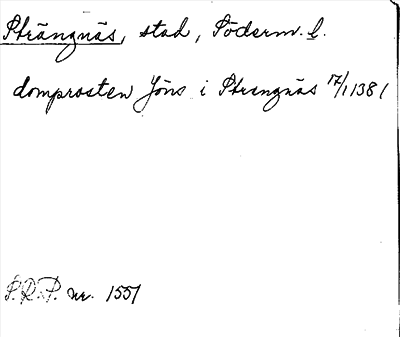 Strängnäs, stad, Söderm. l.
domprosten Jöns i Strengnäs 17/1 1381
S.R.P. nr. 1551